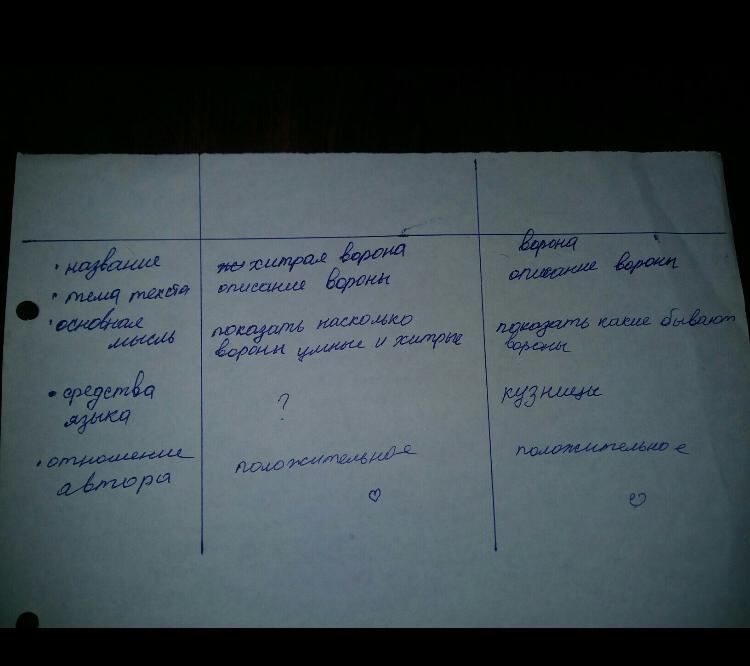 • название
же хитрая ворона
ворона
• тема текста
описание вороны
описание вороны
• основная мысль
показать насколько
вороны умные и хитрые
показать какие бывают
вороны
• средства
языка
?
кузницы
• отношение
автора
положительное
положительное